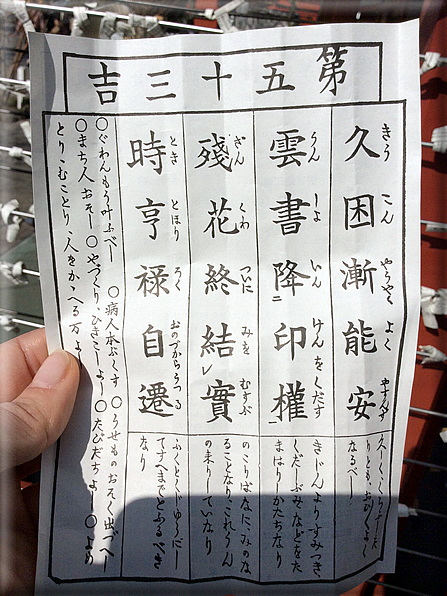 第五十三吉
久困漸能安
きう こん やうやく よく やすんず
雲書降二印權一
うん しよ いん けん をくだす
殘花終結レ實
ざん くわ ついに みを むすぶ
時亨禄自遷
とき とほり ろく おのづからうつる
なるべし
きじんよりすみつき
くだしぶみなどをた
まはりしかたちなり
のこりばなにみのな
ることなりこれうん
の来りしていなり
ふくとくじゆうにし
てすへまでとふるべき
なり
○ぐわんもう叶ふべし ○病人本ぶくす ○うせものおそく出づべし
○まち人おそし ○やづくり、ひきこしよし ○たびだちよし ○よめ
とり、むことり、人をかゝへる万よし